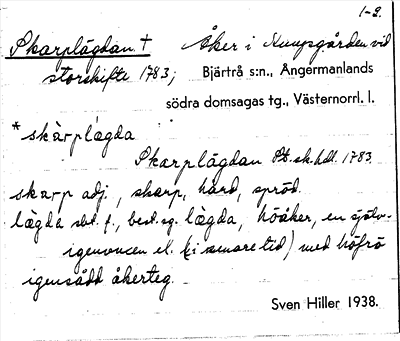 1-2.
Skarplägdan † Åker i Kungsgården vid
storskifte 1783; Bjärtrå s:n., Ångermanlands
södra domsagas tg., Västernorrl. l.
*skàrplägda
Skarplägdan Stsk.hdl. 1783
skarp adj., skarp, hård, spröd.
lägda sbt. f., best. sg. lägda, höåker, en själv-
igenvuxen el. (i senare tid) med höfrö
igensådd åkerteg.
Sven Hiller 1938.